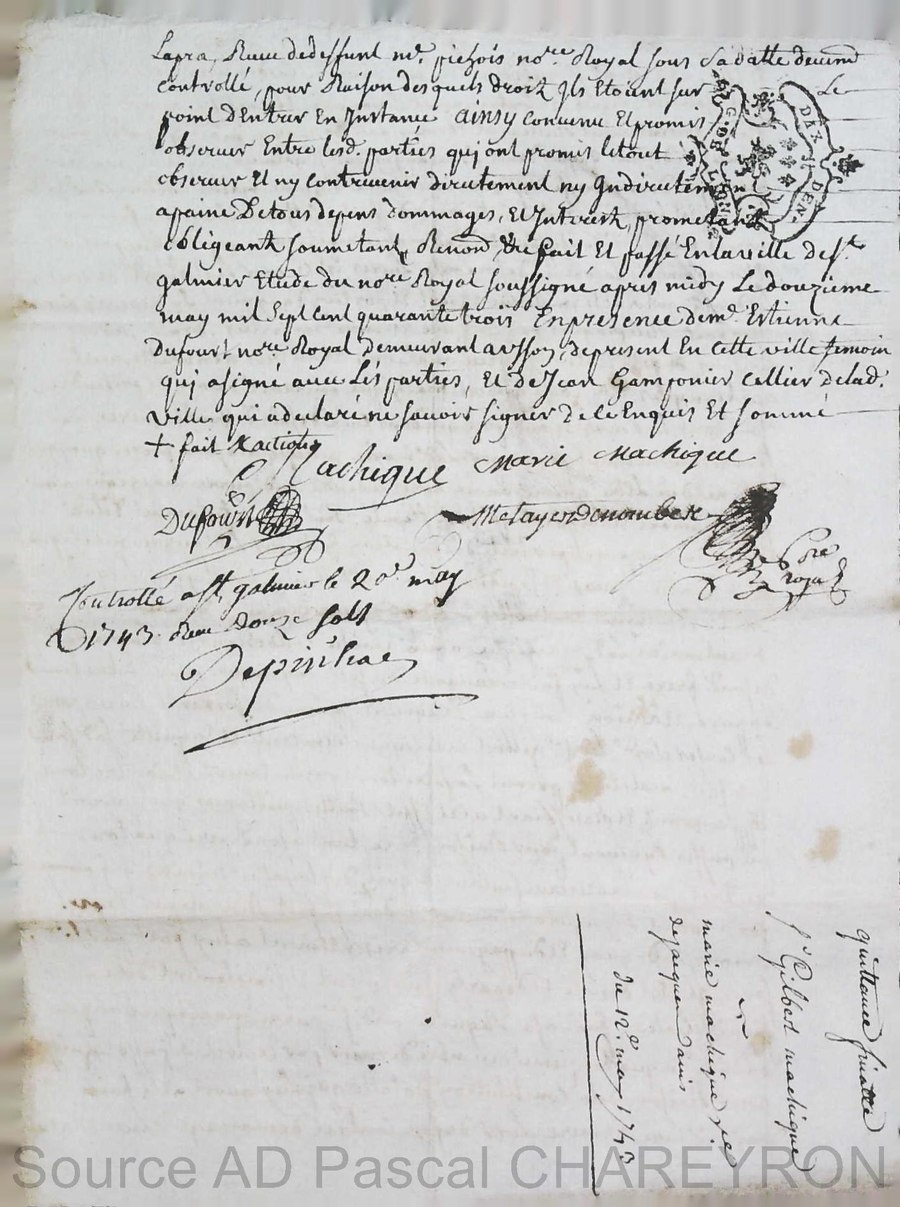 Lapra, Receu de deffunt me. pichois nore. Royal sous sa datte deuem.
controllé, pour Raison desquels droitz Ils Etoient sur Le
point d'Entrer En Instance ainsy convenu Et promis
observer Entre lesd. parties qui ont promis le tout
observer Et ny contrevenir directement ny Indirectement
a paine De tous depens dommages, Et Interest, prometant
obligeant soumetant, Renond. &re fait Et passé En la ville de st.
galmier Etude du nore Royal soussigné apres midy Le douzieme
may mil Sept Cent quarante trois En presence de me. Estienne
Dufourt nore. Royal demeurant a de present En cette ville temoin
qui a signé avec Les parties, Et de Jean Gamponier Cellier de lad.
ville qui a declaré ne savoir signer de ce Enquis Et sommé
+ fait
Machique Marie Machique
Dufourt Metayer
nore Royal
Controllé a st. galmier le 20e may
1743. Receu douze sols
Depinhac
quittance finalle
sr. Gilbert machique
marie machique ve
de jacques
du 12e. may 1743
G. DE LION
DAX. D. DEN.
Source AD Pascal CHAREYRON